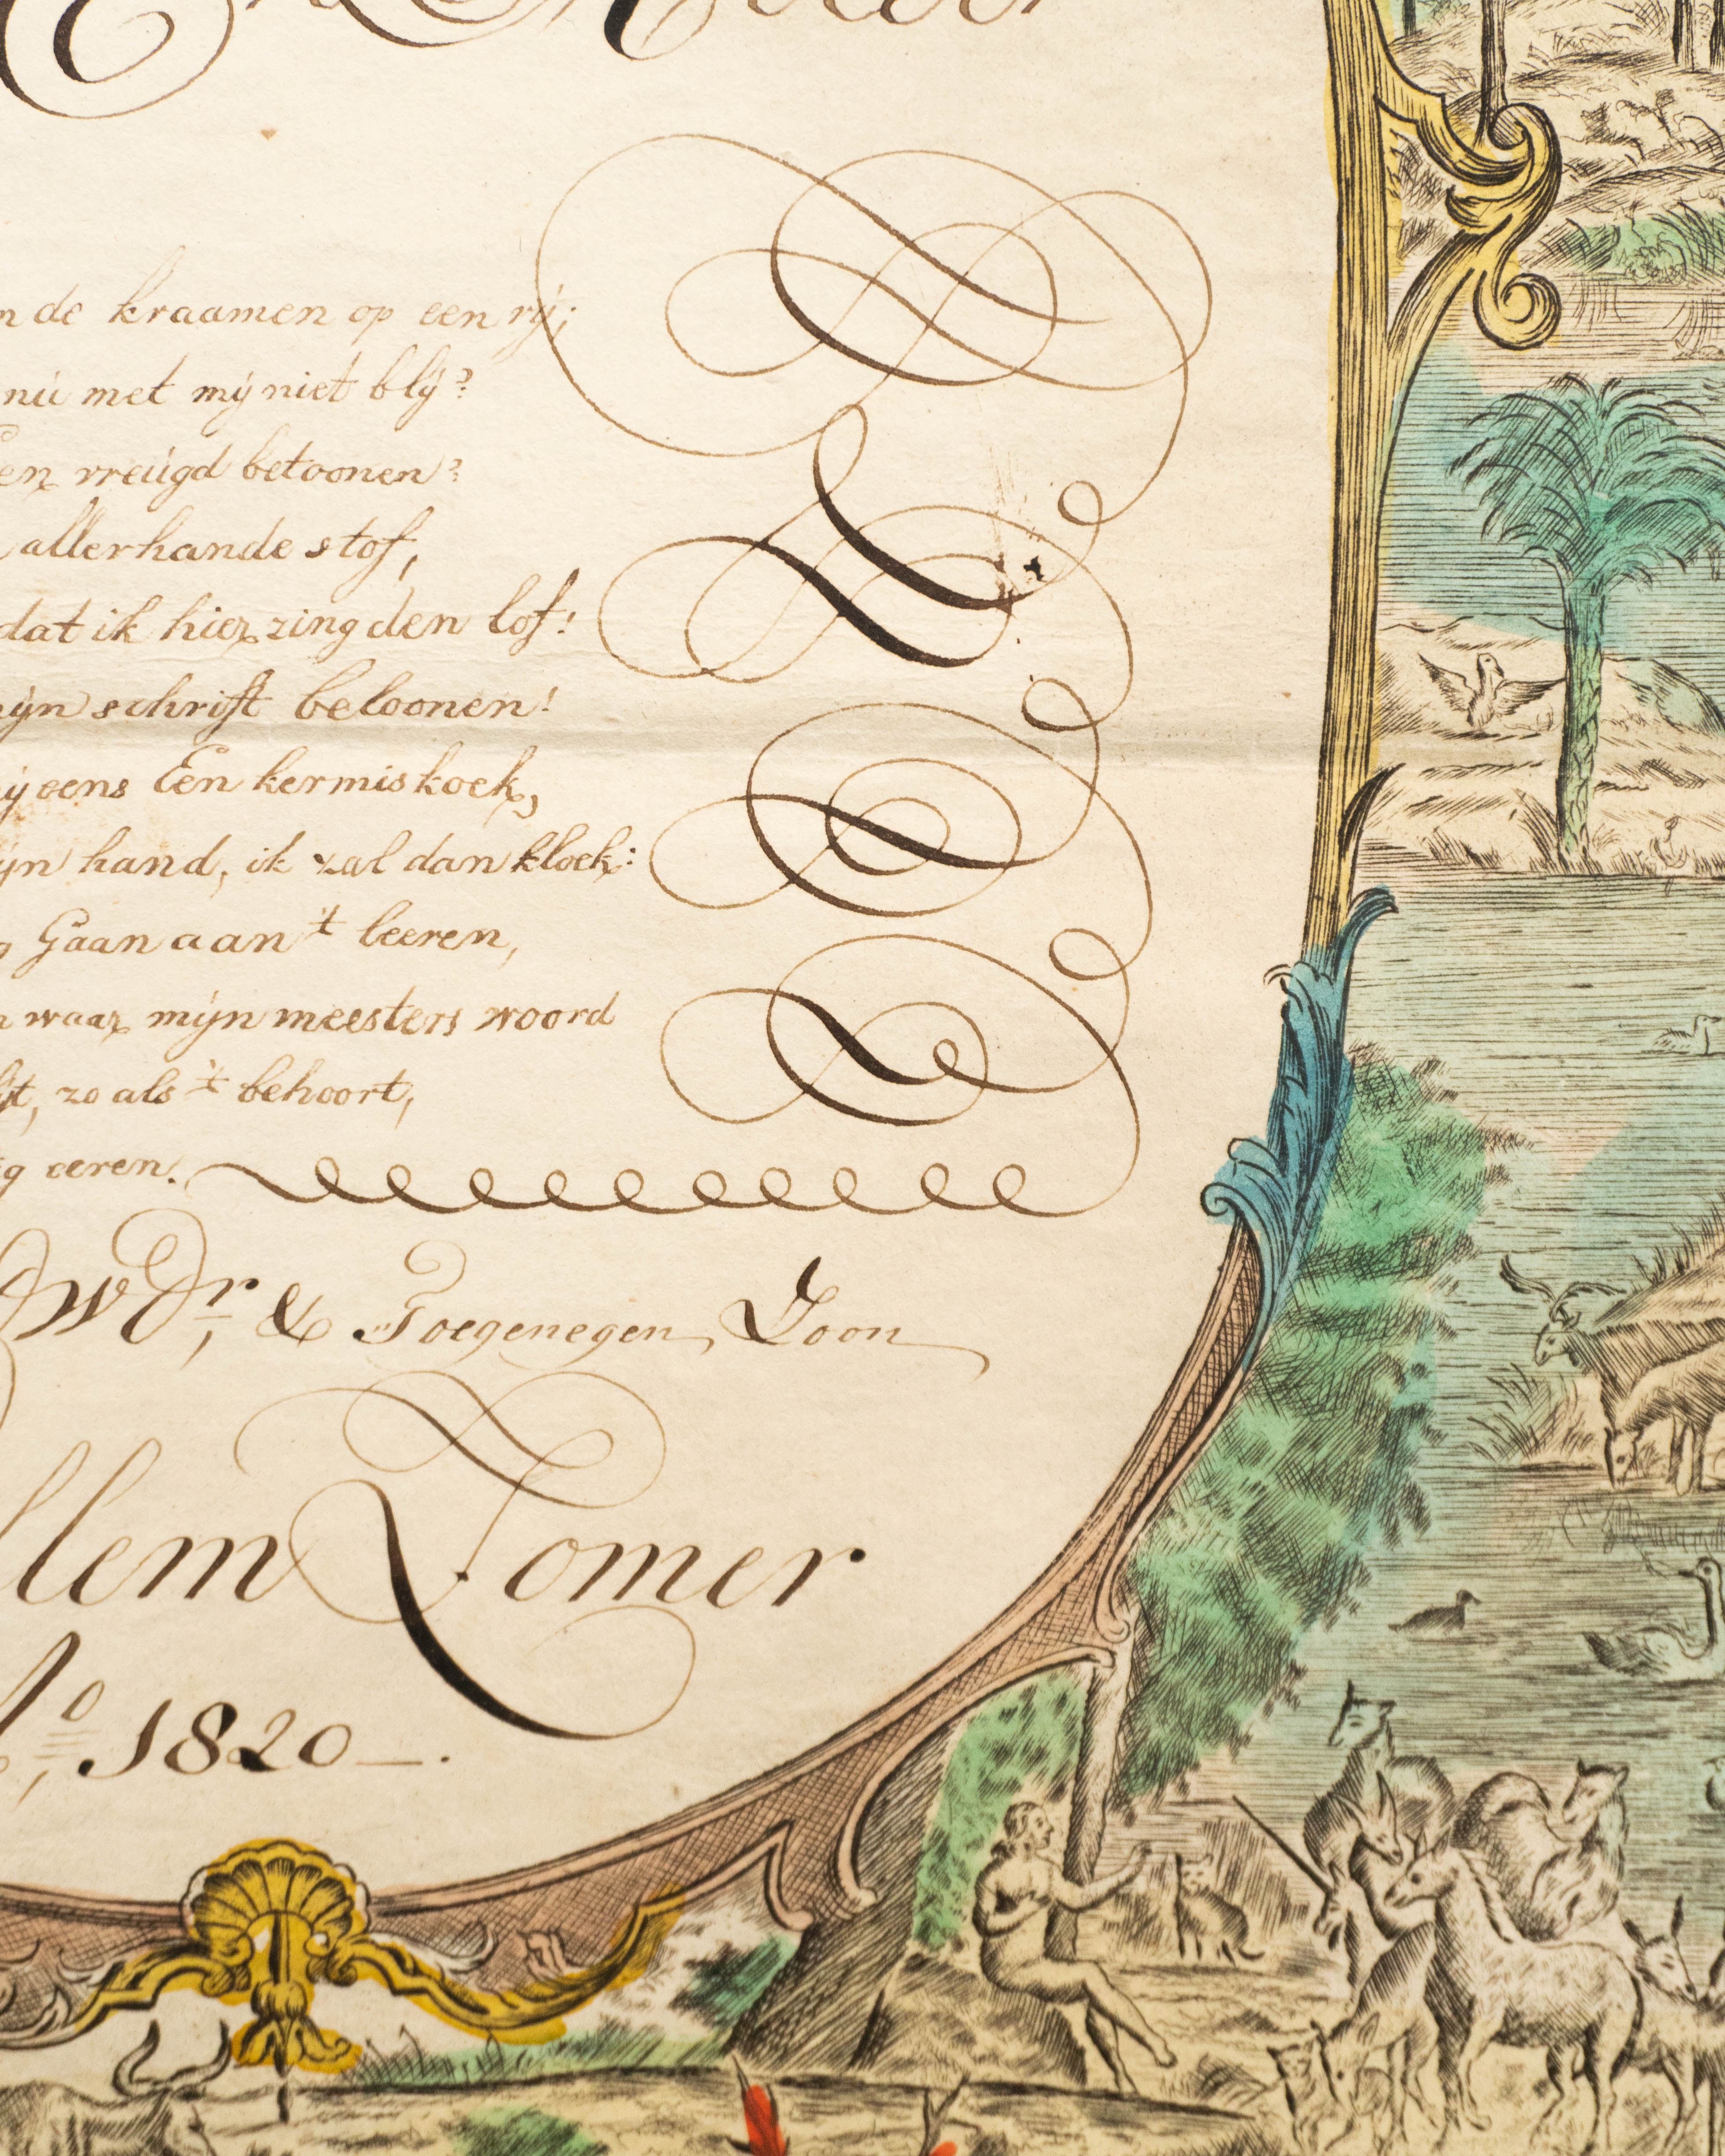 En Moeder
de kraamen op een rÿ;
nú met mÿ niet blÿ?
vreúgd betoonen?
allerhande stof,
dat ik hier zing den lof!
schrift beloonen!
eens Een kermiskoek,
hand, ik zal dan kloek:
Gaan aan 't leeren,
waar mÿn meesters woord
zo als 't behoort,
eeren.
UWDr, & Toegenegen Zoon
llem Zomer
Ao, 1820 —.